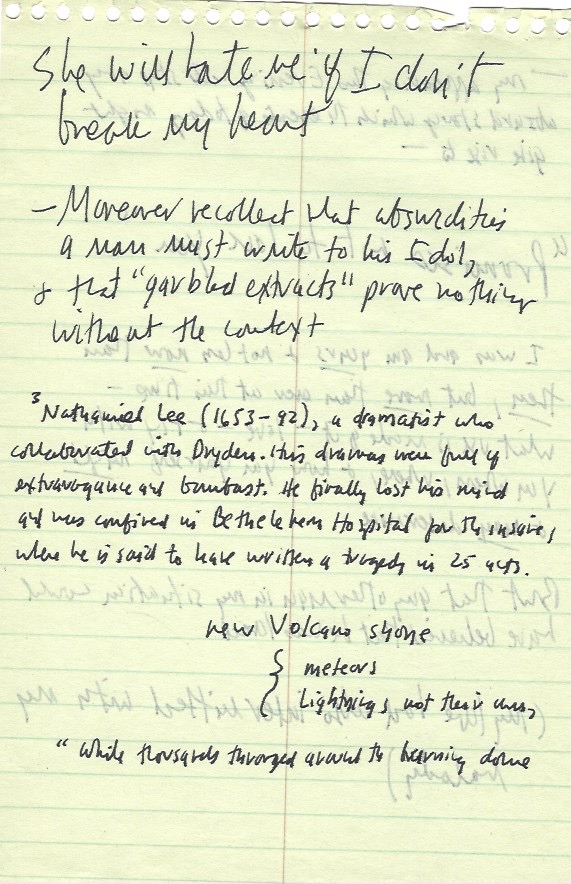 She will hate me if I don't
break my heart
— Moreover recollect that absurdities
a man must write to his Idol,
& that "garbled extracts" prove nothing
without the context
3 Nathaniel Lee (1653-92), a dramatist who
collaborated with Dryden. His dramas were full of
extravagance and bombast. He finally lost his mind
and was confined in Bethelehem Hospital for the insane,
where he is said to have written a tragedy in 25 acts.
new Volcano shone
{ meteors
Lightnings not their own,
"while thousands thronged around the burning dome